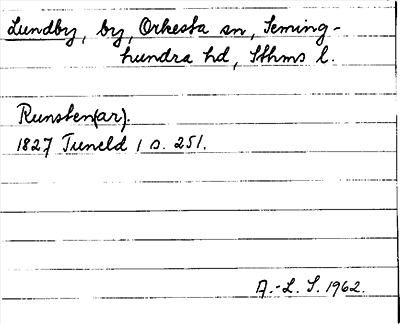 Lundby, by, Orkesta sn, Seming-
hundra hd, Sthms l.
Runsten(ar).
1827 Tuneld 1 s. 251.
A.-L. S. 1962.